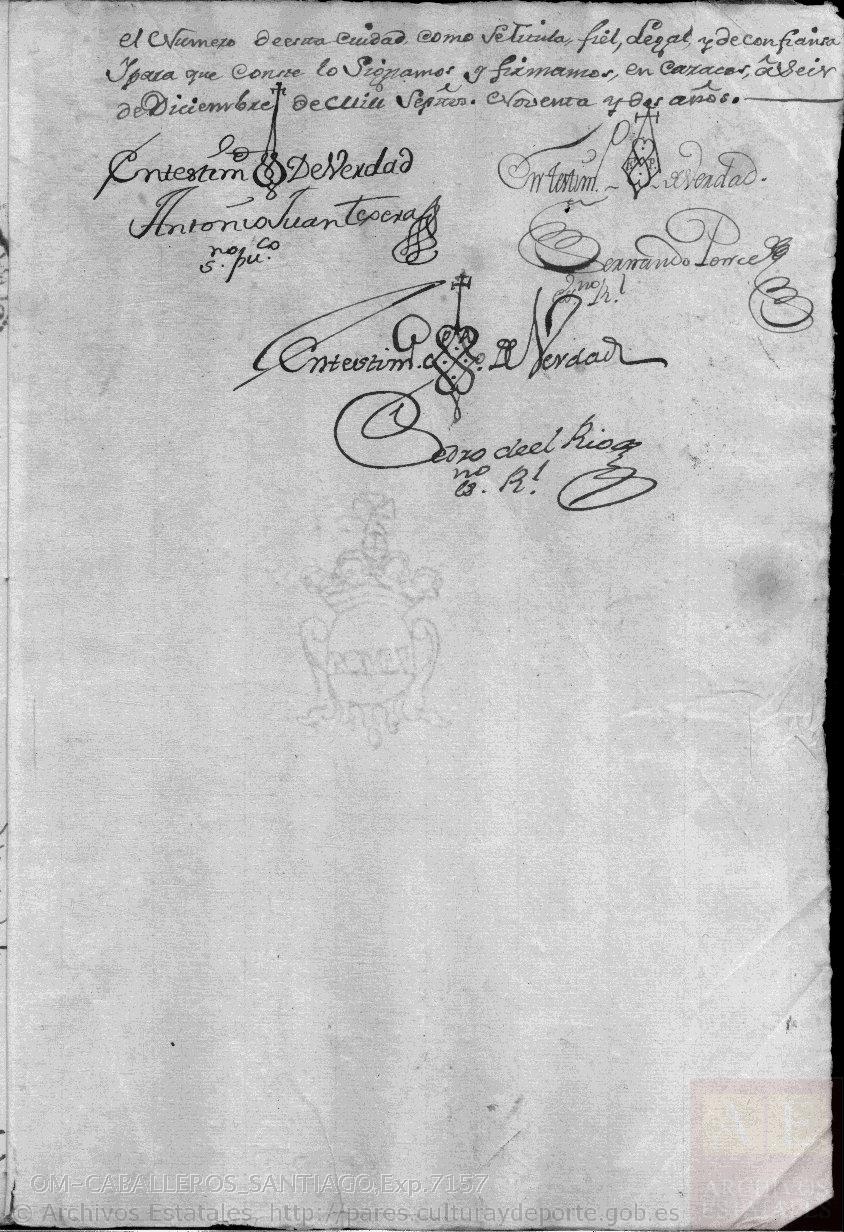 el Numero de esta ciudad como se titula, fiel, legal, y de confianza
Y para que conste lo Signamos y firmamos, en Caracas, â Seis
de Diciembre de mill Septos. Noventa y dos años.
En testimo De Verdad
En testim. de Verdad.
Antonio Juan Texera
s.no pu.co
Fernando Ponce
es.no R.l
En testim.o De Verdad
Pedro de el Rio
es.no R.l
OM-CABALLEROS_SANTIAGO,Exp.7157
© Archivos Estatales, http://pares.culturaydeporte.gob.es
ARCHIVOS
ESTATALES